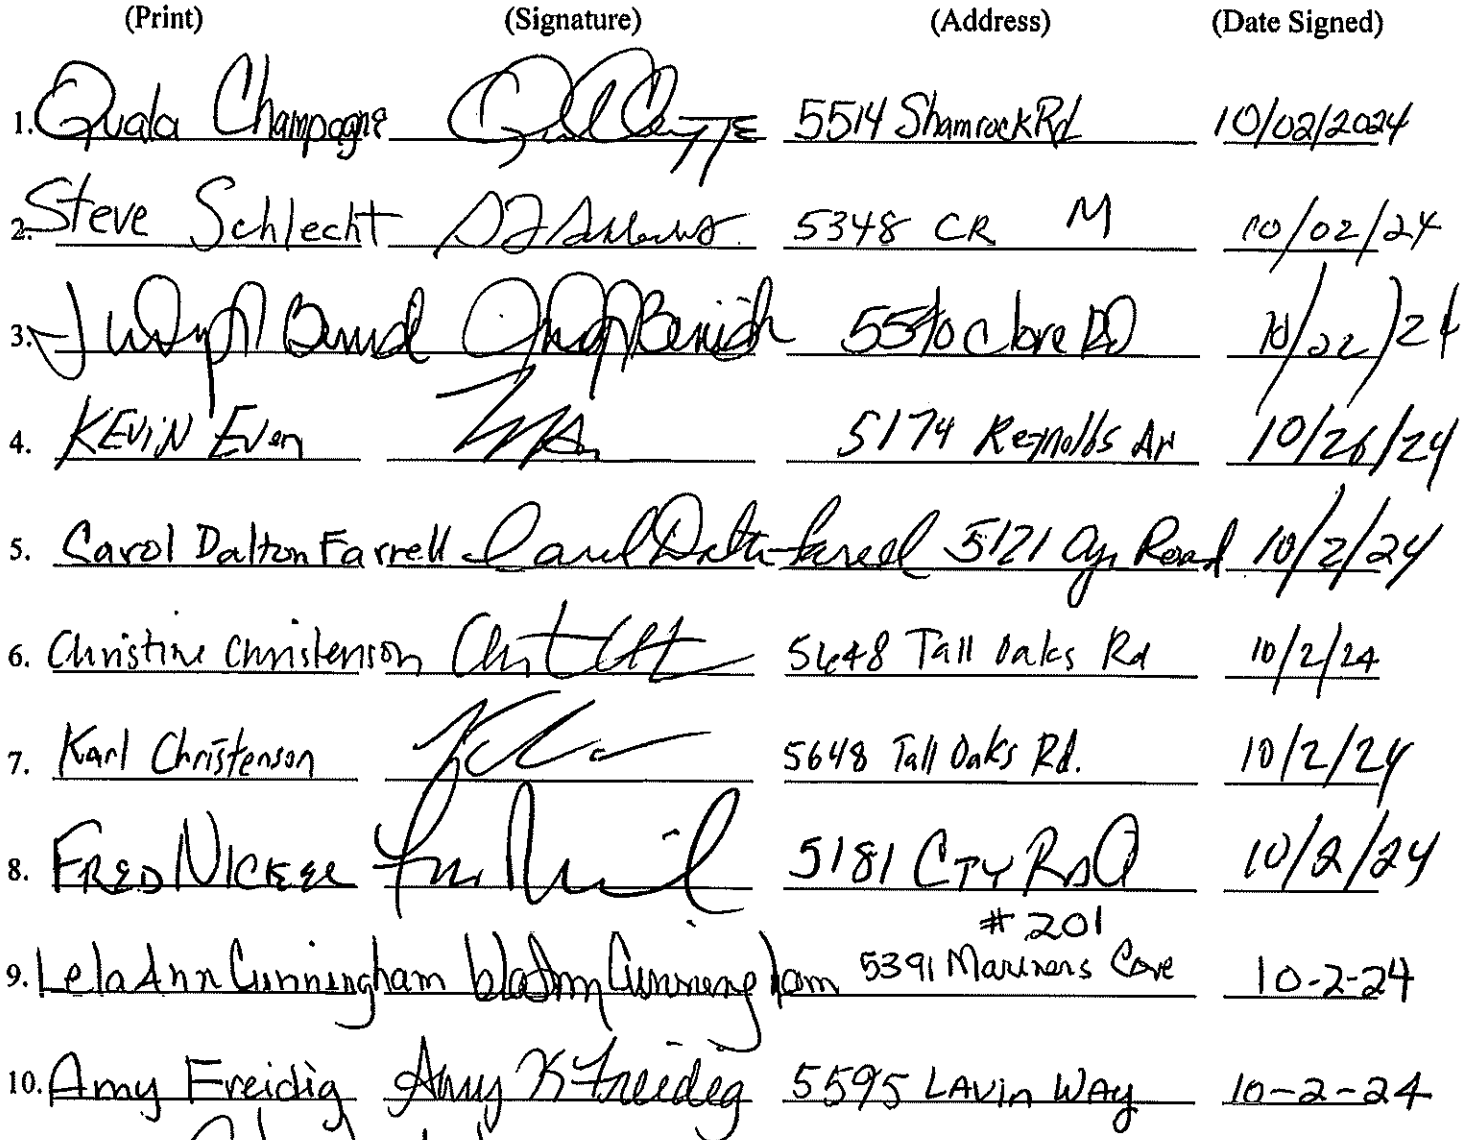 (Print) (Signature) (Address) (Date Signed)
1. Quala Champagne 5514 Shamrock Rd 10/02/2024
2. Steve Schlecht 5348 CR M 10/02/24
3. Judy Benish 10/22/24
4. KEVIN Even 5174 Reynolds Av 10/26/24
5. Carol Dalton Farrell Carol Dalton Farrell 5121 Road 10/2/24
6. Christine Christenson 5648 Tall Oaks Rd 10/2/24
7. Karl Christenson 5648 Tall Oaks Rd. 10/2/24
8. FRED NICKEL 5181 CTY RD Q 10/2/24
#201
9. Lela Ann Cunningham Lela Ann Cunningham 5391 Mariners Cove 10-2-24
10. Amy Freidig Amy K Freidig 5595 LAVIN WAY 10-2-24